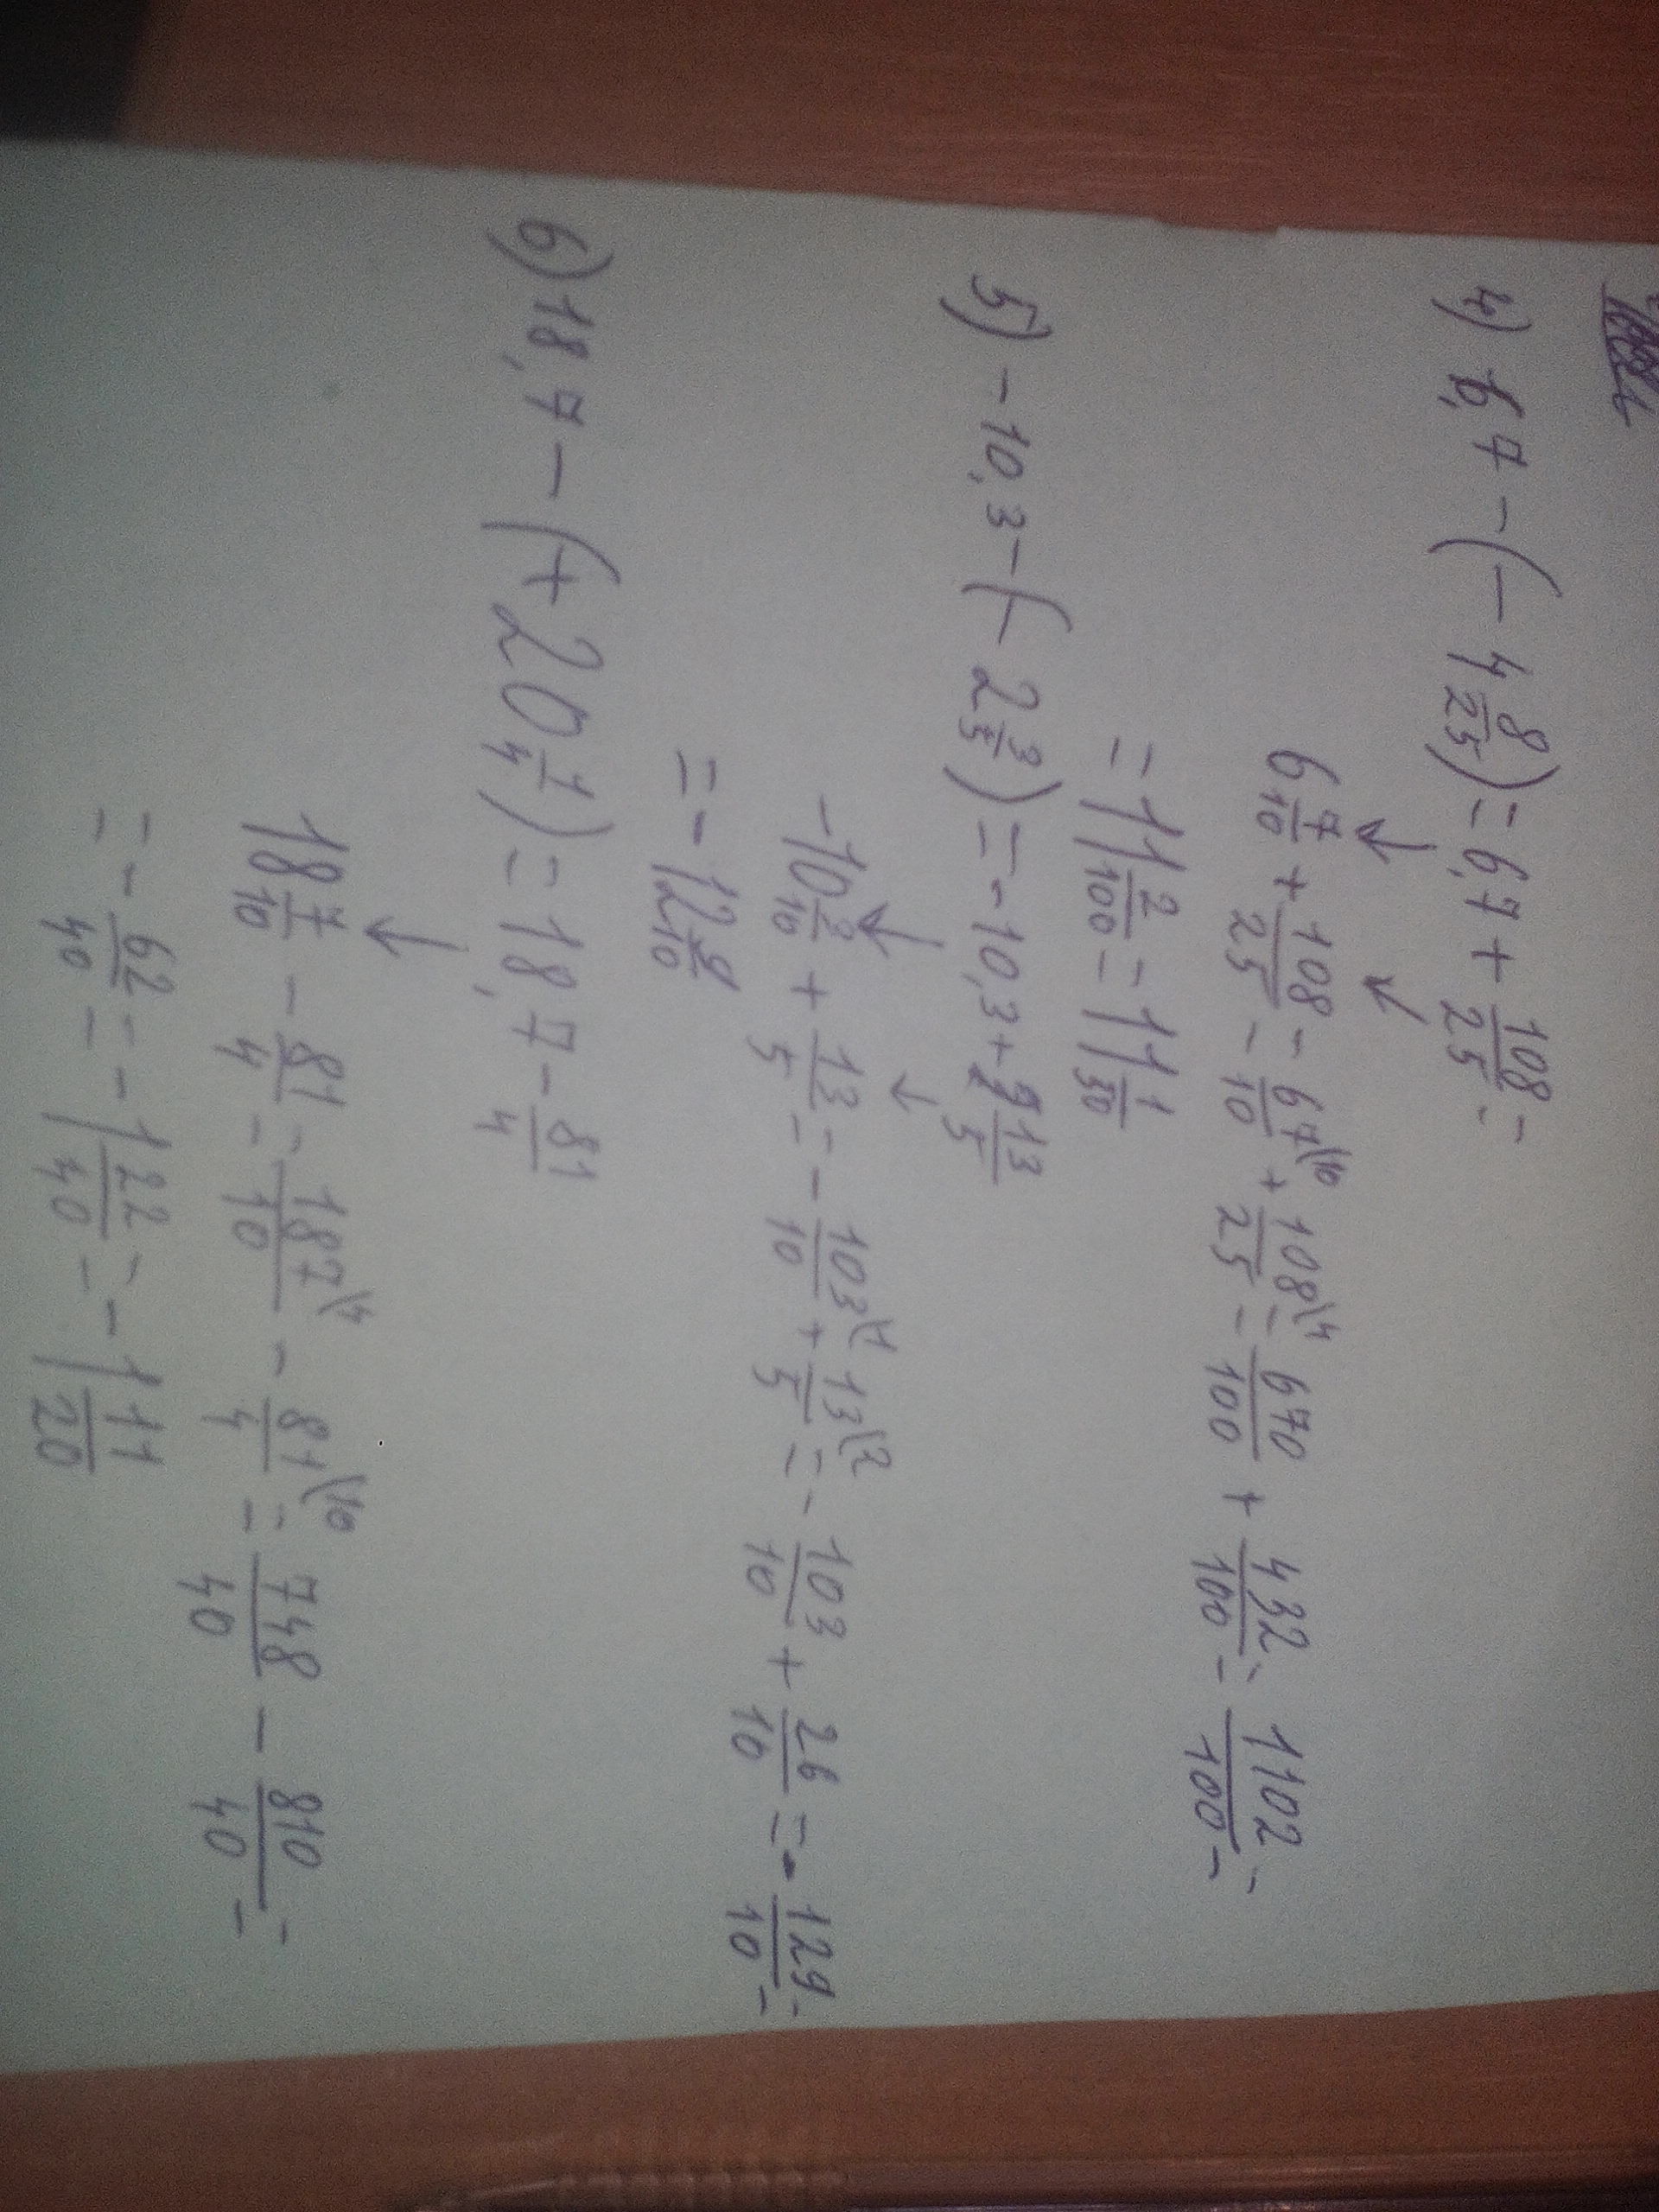 4) 6,7 - (- 4 8/25) = 6,7 + 108/25 =
↓ ↓
6 7/10 + 108/25 = 67\10/10 + 108\4/25 = 670/100 + 432/100 = 1102/100 =
= 11 2/100 = 11 1/50
5) - 10,3 - (- 2 3/5) = - 10,3 + 13/5
↓ ↓
-10 3/10 + 13/5 = - 103\1/10 + 13\2/5 = - 103/10 + 26/10 = - 129/10 =
= - 12 9/10
6) 18,7 - (+ 20 1/4) = 18,7 - 81/4
↓
18 7/10 - 81/4 = 187\4/10 - 81\10/4 = 748/40 - 810/40 =
= - 62/40 = - 1 22/40 = - 1 11/20